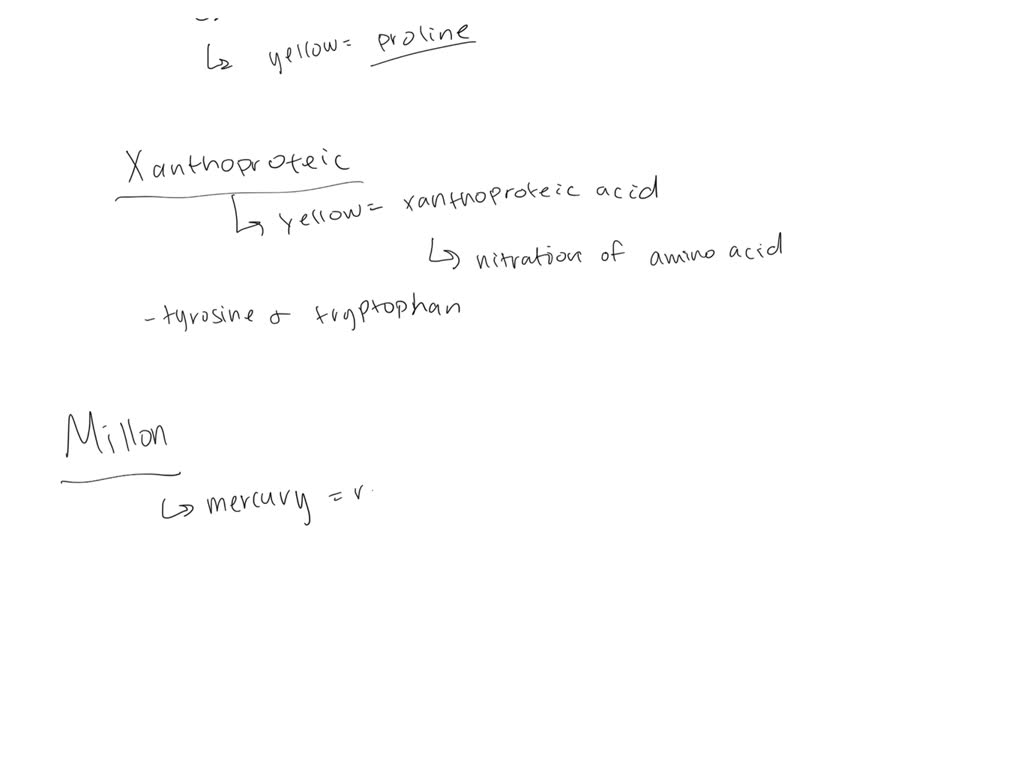 ↳ yellow = proline
Xanthoproteic
↳ yellow = xanthoproteic acid
↳ nitration of amino acid
- tyrosine & tryptophan
Millon
↳ mercury = r